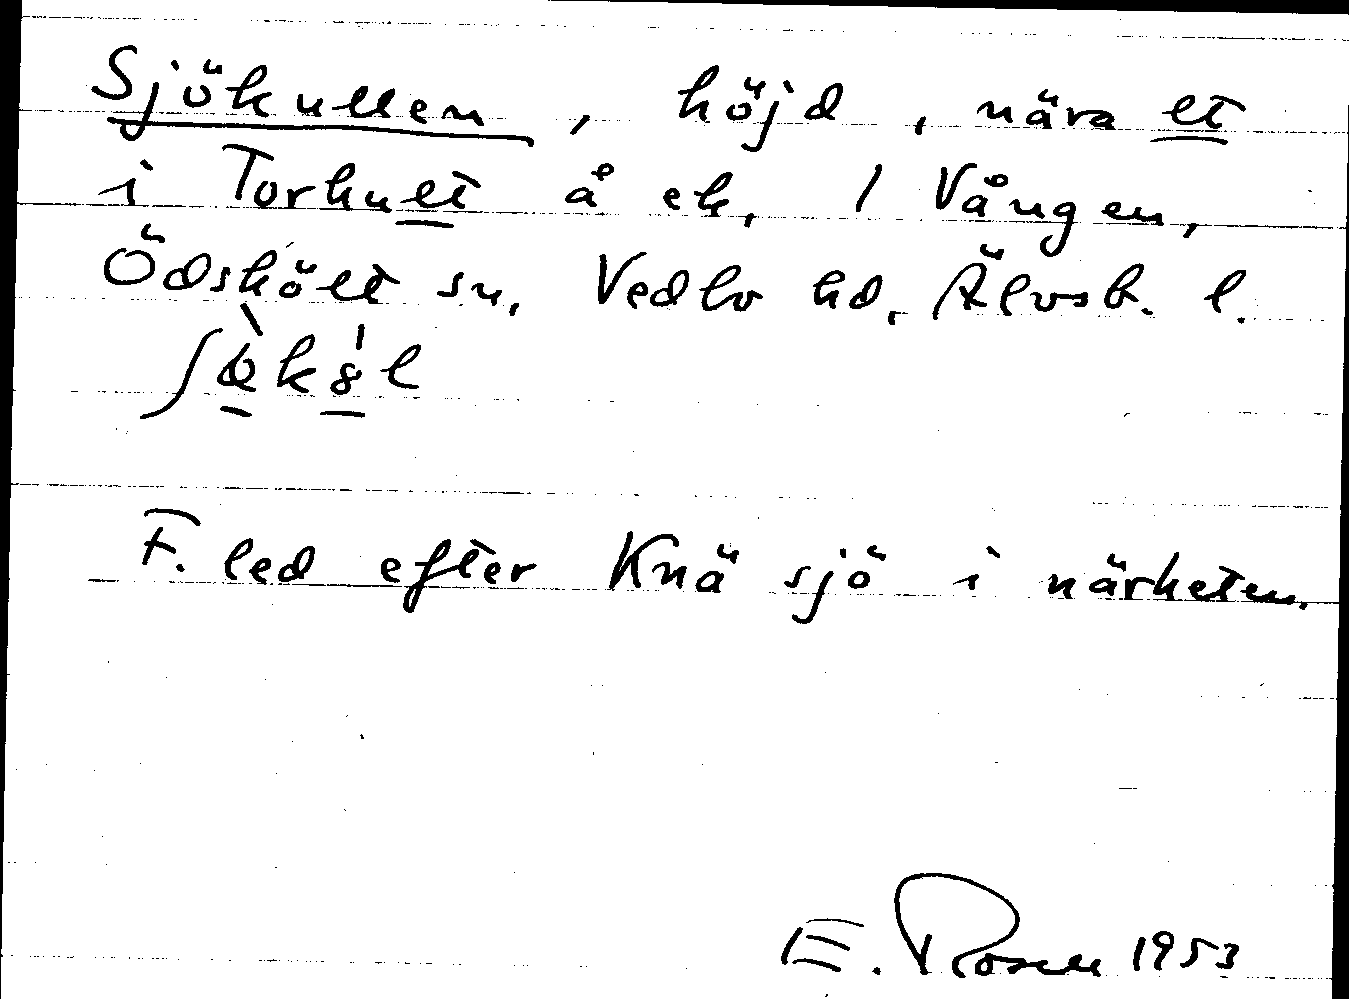 Sjökullen, höjd, nära lt
i Torhult å ek. 1 Vången,
Ödskölt sn, Vedbo hd, Älvsb. l.
F. led efter Knä sjö i närheten.
E. Rosell 1953